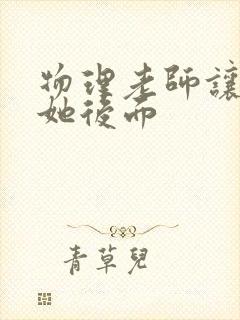 物理老師讓
她後而
青草兒